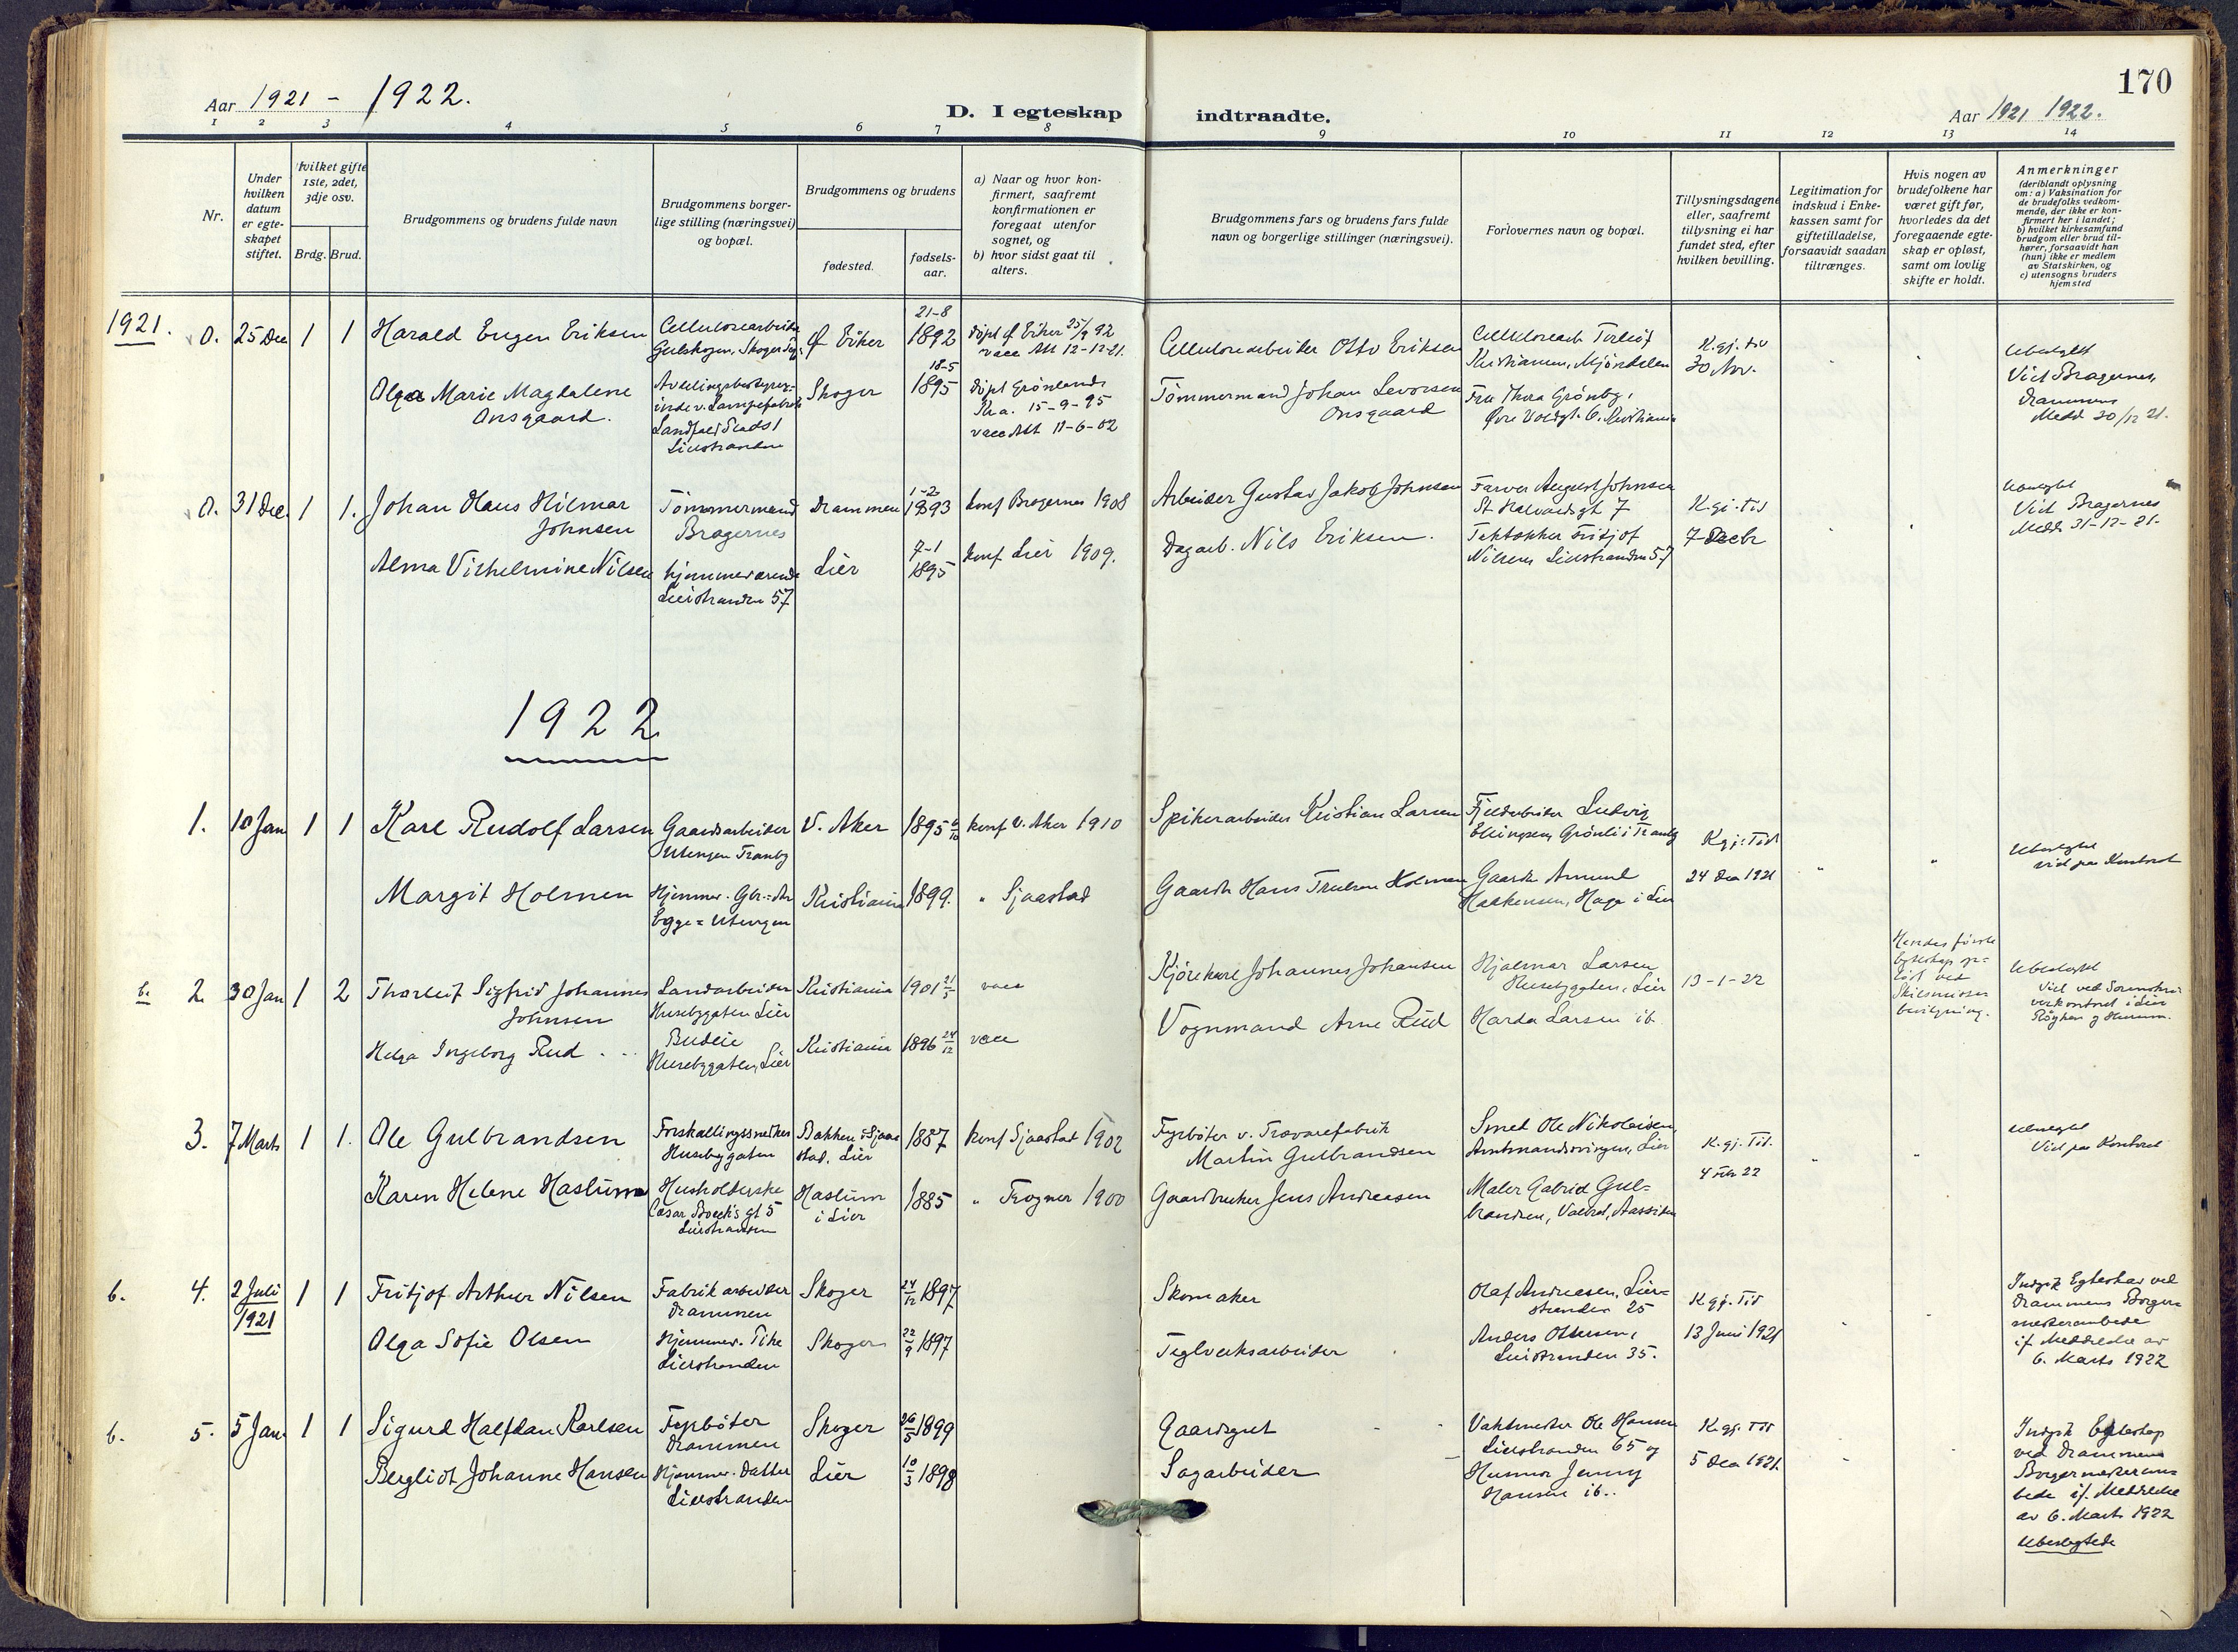 170
Aar 1921 - 1922.
D. I egteskap indtraadte.
Aar 1921 1922.
1 2 3 4 5 6 7 8 9 10 11 12 13 14
Nr.
Under
hvilken
datum
er egte-
skapet
stiftet.
Hvilket gifte
1ste, 2det,
3dje osv.
Brdg. Brud.
Brudgommens og brudens fulde navn
Brudgommens borger-
lige stilling (næringsvei)
og bopæl.
Brudgommens og brudens
fødested.
fødsels-
aar.
a) Naar og hvor kon-
firmert, saafremt
konfirmationen er
foregaat utenfor
sognet, og
b) hvor sidst gaat til
alters.
Brudgommens fars og brudens fars fulde
navn og borgerlige stillinger (næringsvei).
Forlovernes navn og bopæl.
Tillysningsdagene
eller, saafremt
tillysning ei har
fundet sted, efter
hvilken bevilling.
Legitimation for
indskud i Enke-
kassen samt for
giftetilladelse,
forsaavidt saadan
tiltrænges.
Hvis nogen av
brudefolkene har
været gift før,
hvorledes da det
foregaaende egte-
skap er opløst,
samt om lovlig
skifte er holdt.
Anmerkninger
(deriblandt oplysning
om: a) Vaksination for
de brudefolks vedkom-
mende, der ikke er kon-
firmert her i landet;
b) hvilket kirkesamfund
brudgom eller brud til-
hører, forsaavidt han
(hun) ikke er medlem
av Statskirken, og
c) utensogns bruders
hjemsted
1921.
0. 25 Dec 1 1 Harald Eugen Eriksen
Cellulosearbeider
Gulskogen, Skoger
Ø Eiker
21-8
1892
døpt Ø Eiker 25/9 92
vacc Att 12-12-21.
Cellulosearbeider Otto Eriksen
Kristiansen, Mjøndalen
K.gj. tid
30 Nov.
Ubeslegtet
Viet Bragernes,
Drammen
Medd 30/12 21.
Olga Marie Magdalene
Onsgaard.
Lierstranden
Skoger
18-5
1895
døpt Grønlands
Kra. 15-9-95
vacc Att 11-6-02
Tømmermand Johan Levorsen
Onsgaard
Fru Thora Grønby,
Øvre Voldgt. 6, Kristiania
0. 31 Dec. 1 1. Johan Hans Hilmar
Johnsen
Tømmermand
Bragernes
Drammen
1-2
1893
konf Bragernes 1908
Arbeider Gustav Jakob Johnsen
Farver August Johnsen
St. Halvardsgt 7
K.gj. Tid
7 Decbr
Ubeslegtet
Viet Bragernes
Medd 31-12-21.
Alma Vilhelmine Nilsen
hjemmeværende
Lierstranden 57
Lier
7-1
1895
konf Lier 1909.
Dagarb. Nils Eriksen.
Fritjof
Nilsen, Lierstranden 57
1922
1. 10 Jan 1 1 Karl Rudolf Larsen
Gaardsarbeider
Utengen Tranby
V. Aker
1895 6/10
konf V. Aker 1910
Spikerarbeider Kristian Larsen
Fjeldarbeider Ludvig
Ellingsen, Grønli i Tranby
K.gj. Tid
24 Dec 1921
"
Ubeslegtet
viet paa Kontoret
Margit Holmen
Egge = Utengen
Kristiania
1899.
" Sjaastad
Gaardbr Hans Trulsen Holmen
Gaardbr Amund
Haakensen, Haga i Lier
b. 2. 30 Jan 1 2 Thorleif Sigfrid Johannes
Johnsen
Landarbeider
Husebygaten Lier
Kristiania
1901 21/5
vacc
Kjørekarl Johannes Johansen
Hjalmar Larsen
Husebygaten, Lier
13-1-22
Hendes første
egteskap op-
løst ved
Skilsmisse
bevilgning.
Ubeslegtet
Viet ved Sorenskri-
verkontoret i Lier
Røyken og Hurum.
Helga Ingeborg Rud
Budeie
Husebygaten, Lier
Kristiania
1896 24/12
vacc
Vognmand Arne Rud
Harda Larsen ib.
3. 7 Marts 1 1. Ole Gulbrandsen
Forskallingssnekker
Husebygaten
Bakken i Sjaa-
stad, Lier
1887
konf Sjaastad 1902
Fyrbøter v. Trævarefabrik
Martin Gulbrandsen
Smed Ole Nikolaisen,
Amtmandsvingen, Lier
K.gj. Tid.
4 Feb 22
Ubeslegtet
Viet paa Kontoret
Karen Helene Haslum
Husholderske
Cæsar Boeck's gt 5
Lierstranden
Haslum
i Lier
1885
" Frogner 1900
Gaardbruker Jens Andreasen
Maler Gabriel Gul-
brandsen, Aassiden
b. 4. 2 Juli
1921
1 1 Fritjof Arthur Nilsen
Fabrikarbeider
Drammen
Skoger
24/12 1897
Skomaker
Olaf Andreasen, Lier-
stranden 25
K.gj. Tid
13 Juni 1921
Indgik Egteskap ved
Drammens Borger-
mesterembede
if. Meddelelse av
6. Marts 1922
Olga Sofie Olsen
Hjemmev. Pike
Lierstranden
Skoger
22/9 1897
Teglverksarbeider
Anders Ottersen,
Lierstranden 35.
b. 5. 5 Jan. 1 1 Sigurd Halfdan Karlsen
Fyrbøter
Drammen
Skoger
26/5 1899
Gaardsgut
Vaktmester Ole Hansen
Lierstranden 65 og
K.gj. Tid
5 Dec 1921.
Indgik Egteskap
ved Drammens
Borgermesterem-
bede if. Meddelelse
av 6. Marts 1922
Ubeslegtede
Bergliot Johanne Hansen
Hjemmev. Datter
Lierstranden
Lier
10/3 1898
Sagarbeider
Husmor Jenny
Hansen ib..